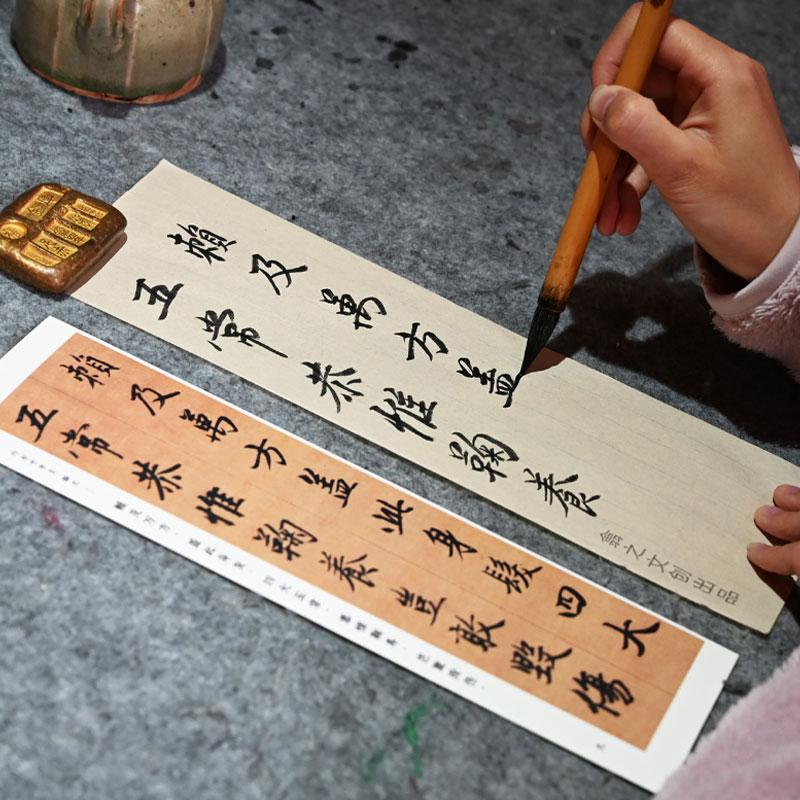 賴及萬方盖
五常恭惟鞠養
翕之文创出品
賴及萬方盖此身髮四大
五常恭惟鞠養豈敢毀傷